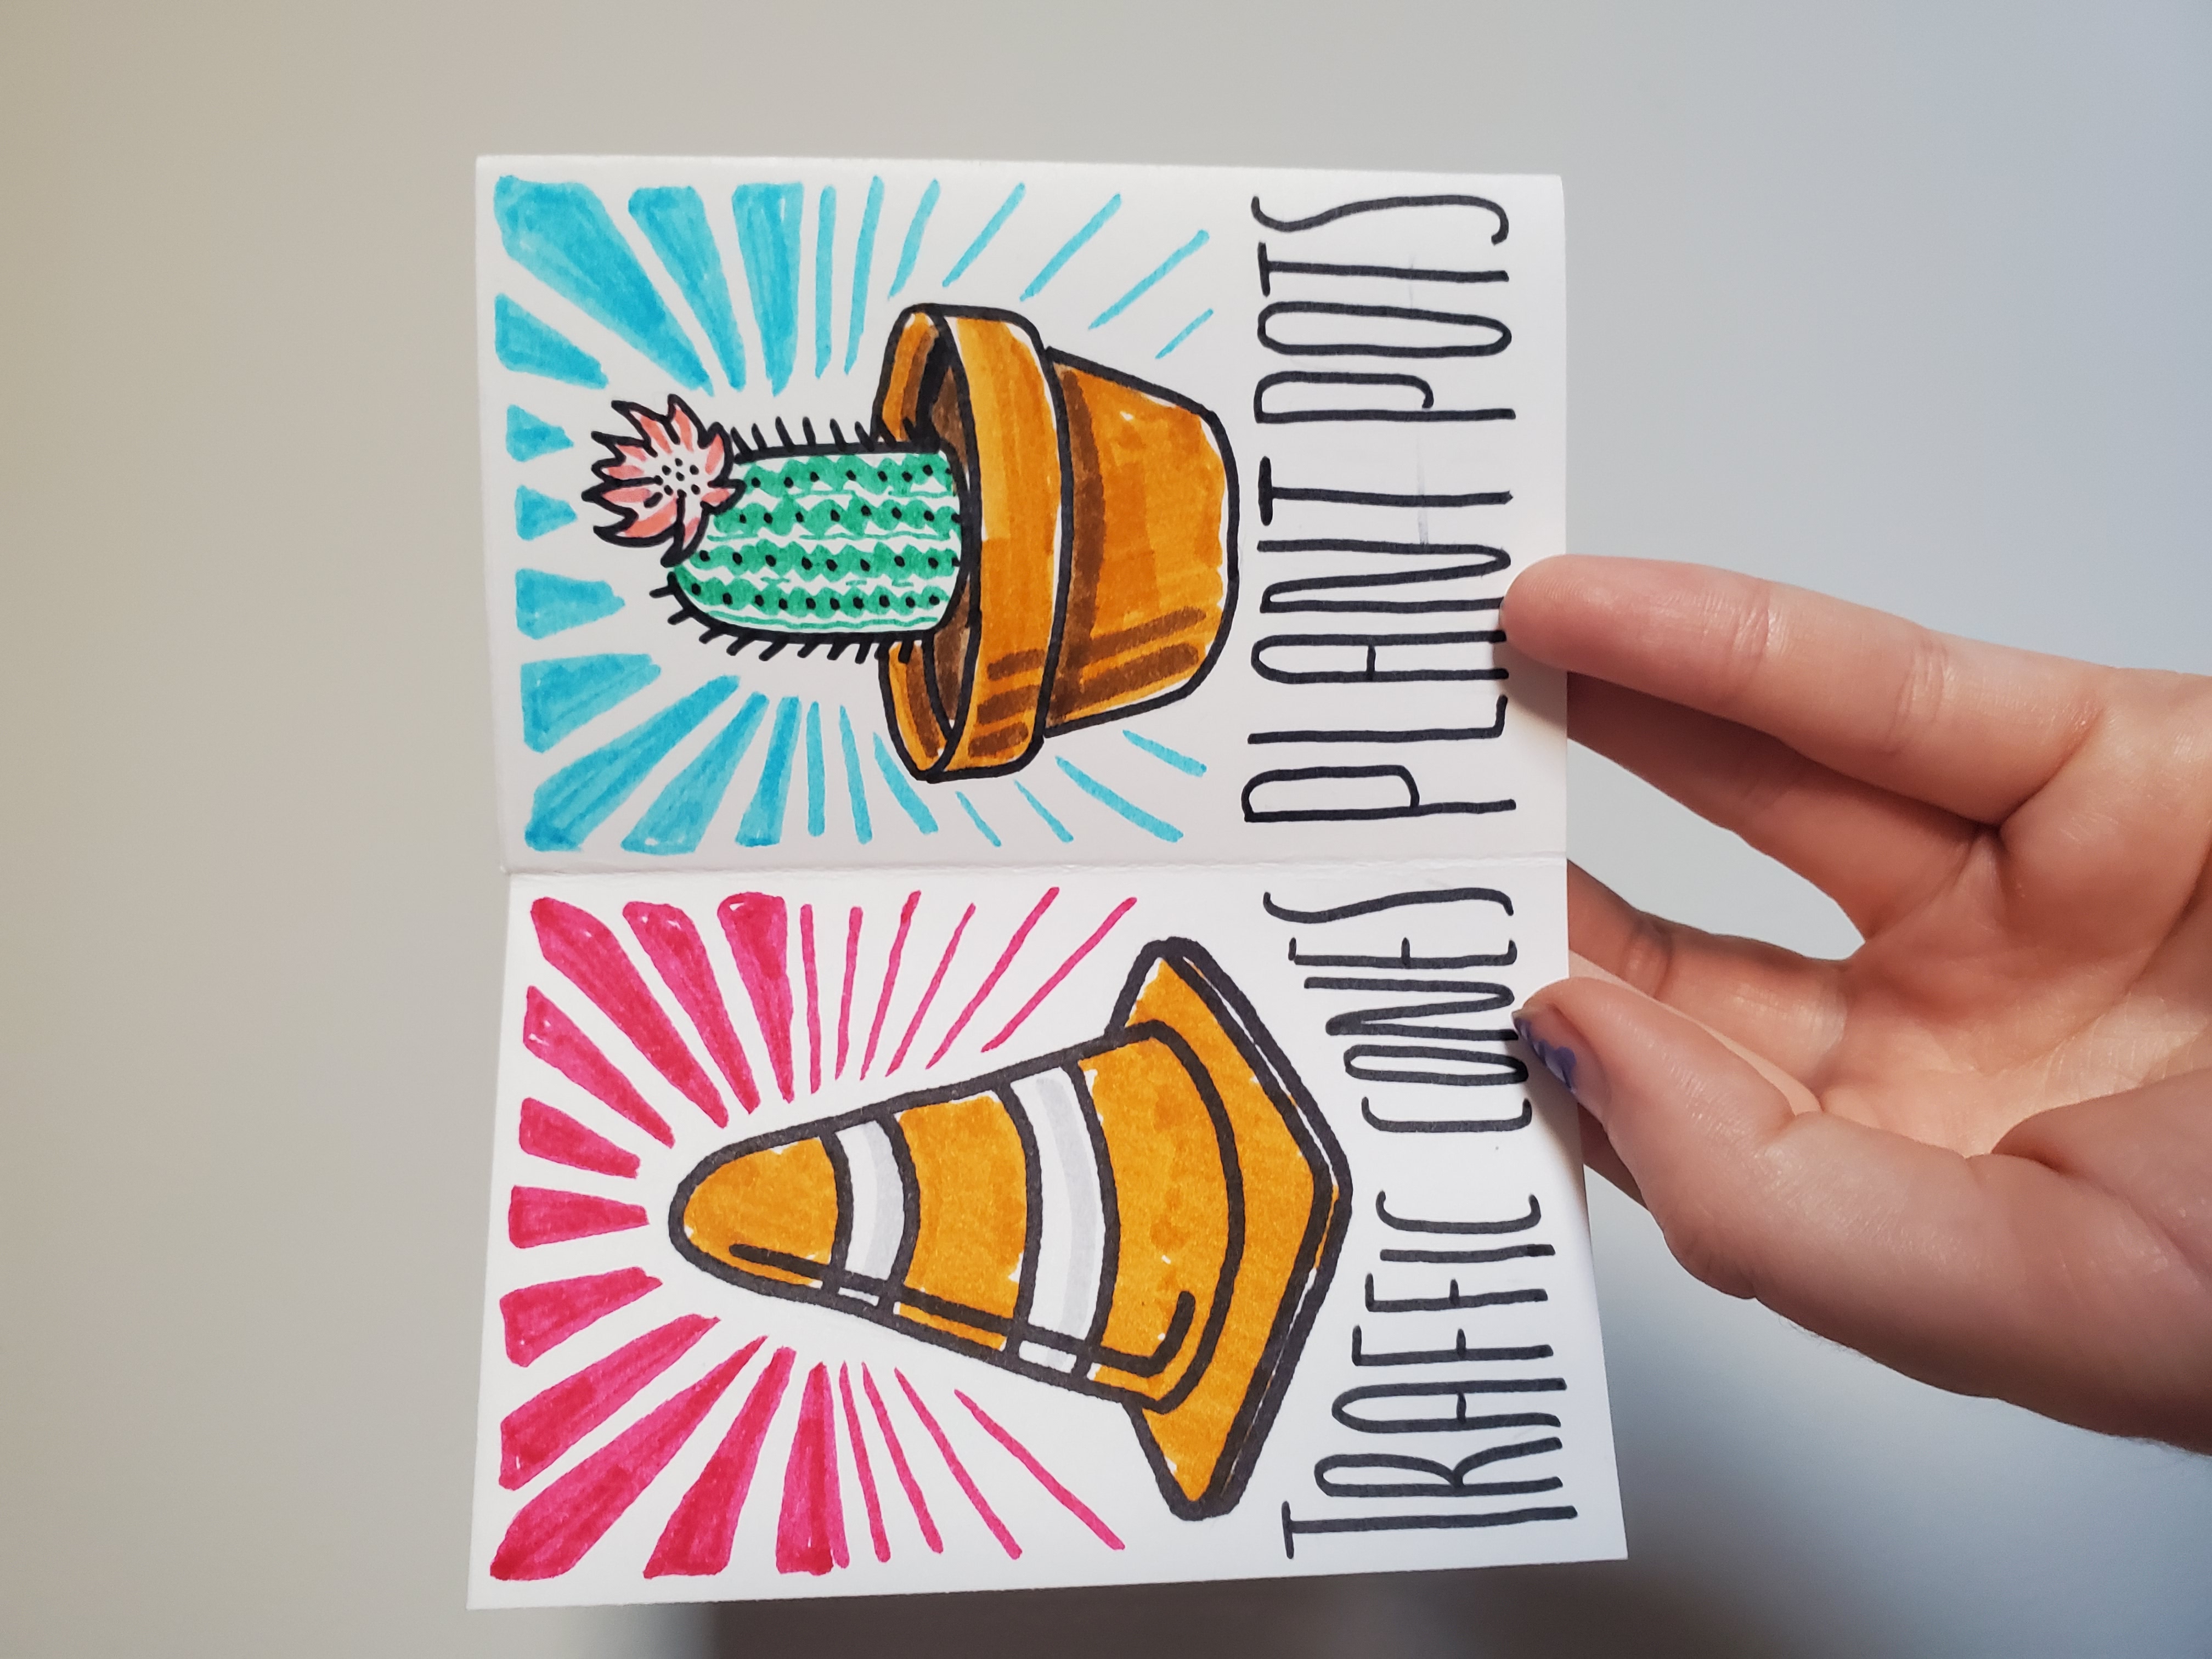 TRAFFIC CONES
PLANT POTS